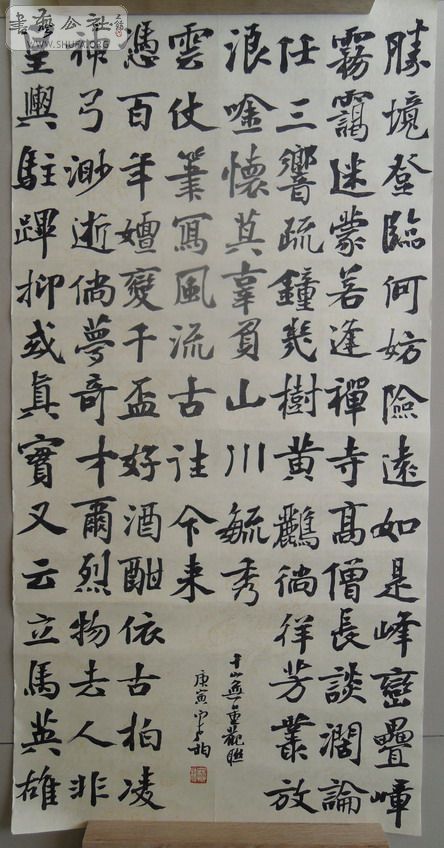 勝境登臨何妨險遠如是峰巒疊嶂
霧靄迷蒙若逢禪寺高僧長談濶論
任三響疏鐘幾樹黃鸝徜徉芳叢放
浪唫懷莫辜負山川毓秀
皇輿駐蹕抑或真實又云立馬英雄
神弓渺逝倘夢奇才爾烈物去人非
憑百年嬗變千盃好酒酣依古柏凌
雲仗筆寫風流古往今來
千山無量觀聯
庚寅
書藝公社
WWW.SHUFA.ORG